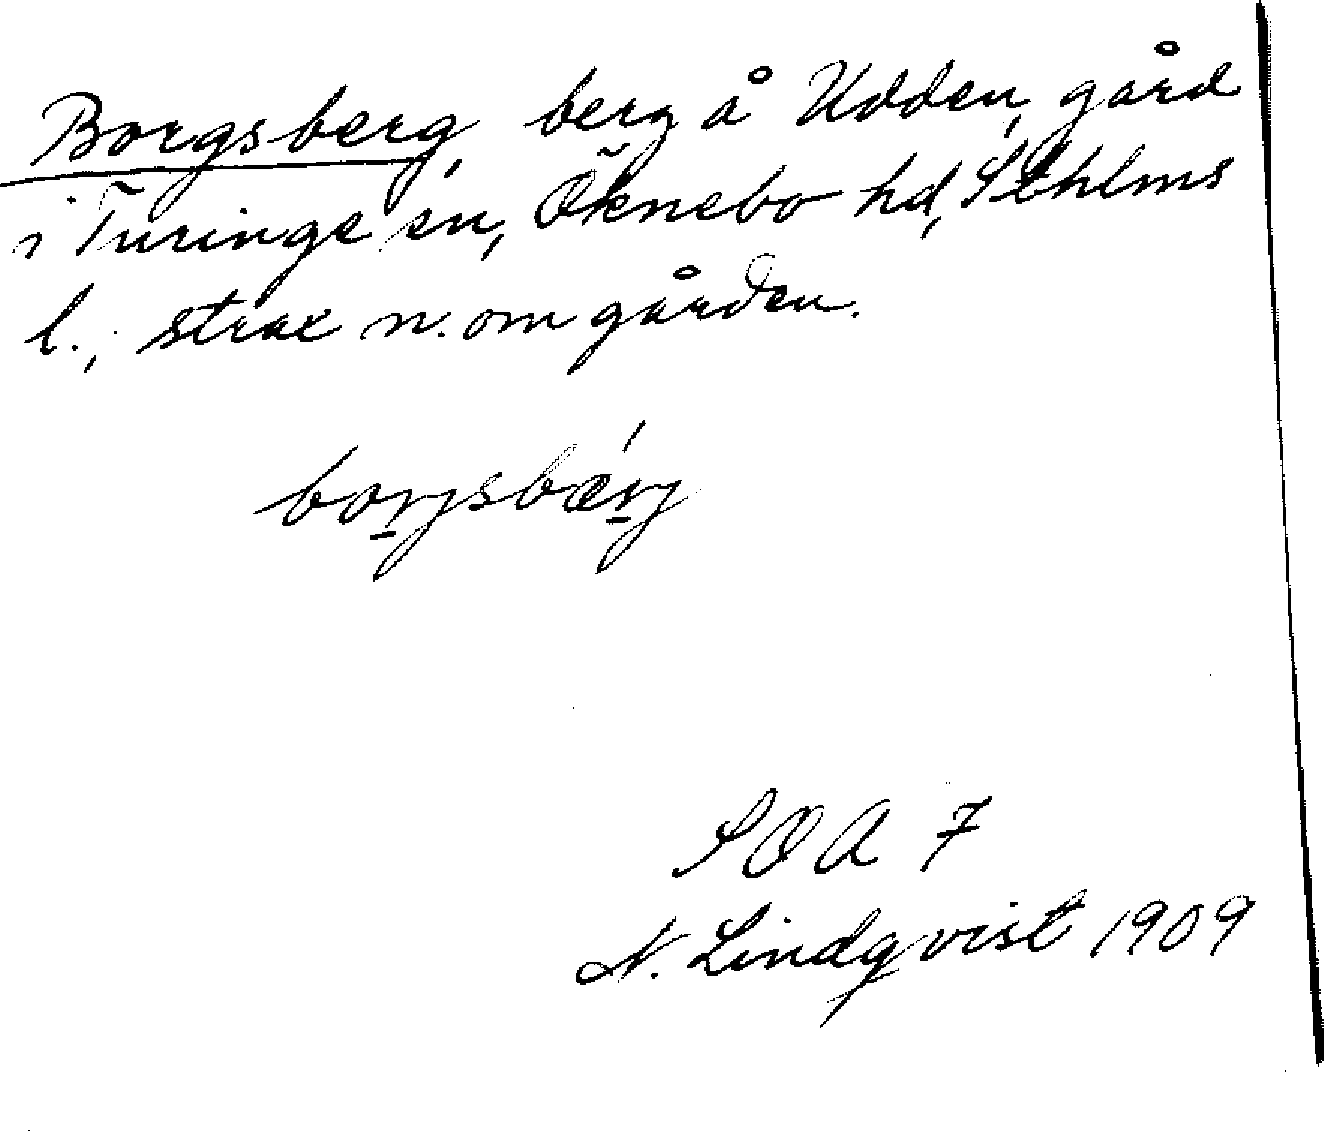 Borgsberg, berg å Udden, gård
i Turinge sn, Öknebo hd, Sthlms
l., strax n. om gården.
borjsbærj
SOA 7
N. Lindqvist 1909